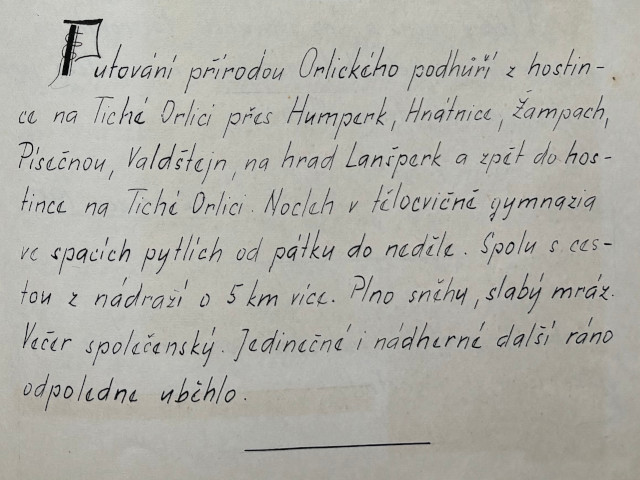 Putování přírodou Orlického podhůří z hostin-
ce na Tiché Orlici přes Humperk, Hnátnice, Žampach,
Písečnou, Valdštejn, na hrad Lanšperk a zpět do hos-
tince na Tiché Orlici. Nocleh v tělocvičně gymnazia
ve spacích pytlích od pátku do neděle. Spolu s ces-
tou z nádraží o 5 km více. Plno sněhu, slabý mráz.
Večer společenský. Jedinečné i nádherné další ráno
odpoledne uběhlo.